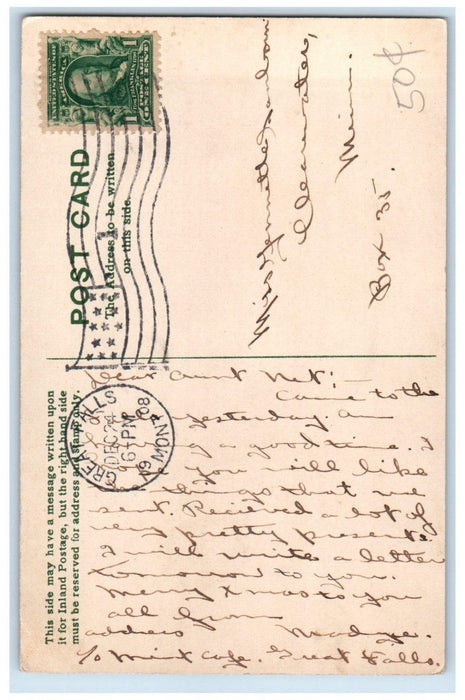 50¢
UNITED STATES OF AMERICA
FRANKLIN
POSTAGE
ONE CENT
1 1
POST CARD
The Address to be written
on this side.
Miss Nennette
Clearwater,
Minn.
Box 35.
This side may have a message written upon
it for Inland Postage, but the right hand side
must be reserved for address and stamp only.
GREAT FALLS MONT
DEC 24
6 PM
08
Dear Aunt Net; —
Came to the
yesterday. am
a good time. I
you will like
things that we
sent. Recieved a lot of
very pretty presents.
I will write a letter
tomorrow to you.
Merry Xmas to you
all from
address Madge.
c/o Mint Cafe. Great Falls.